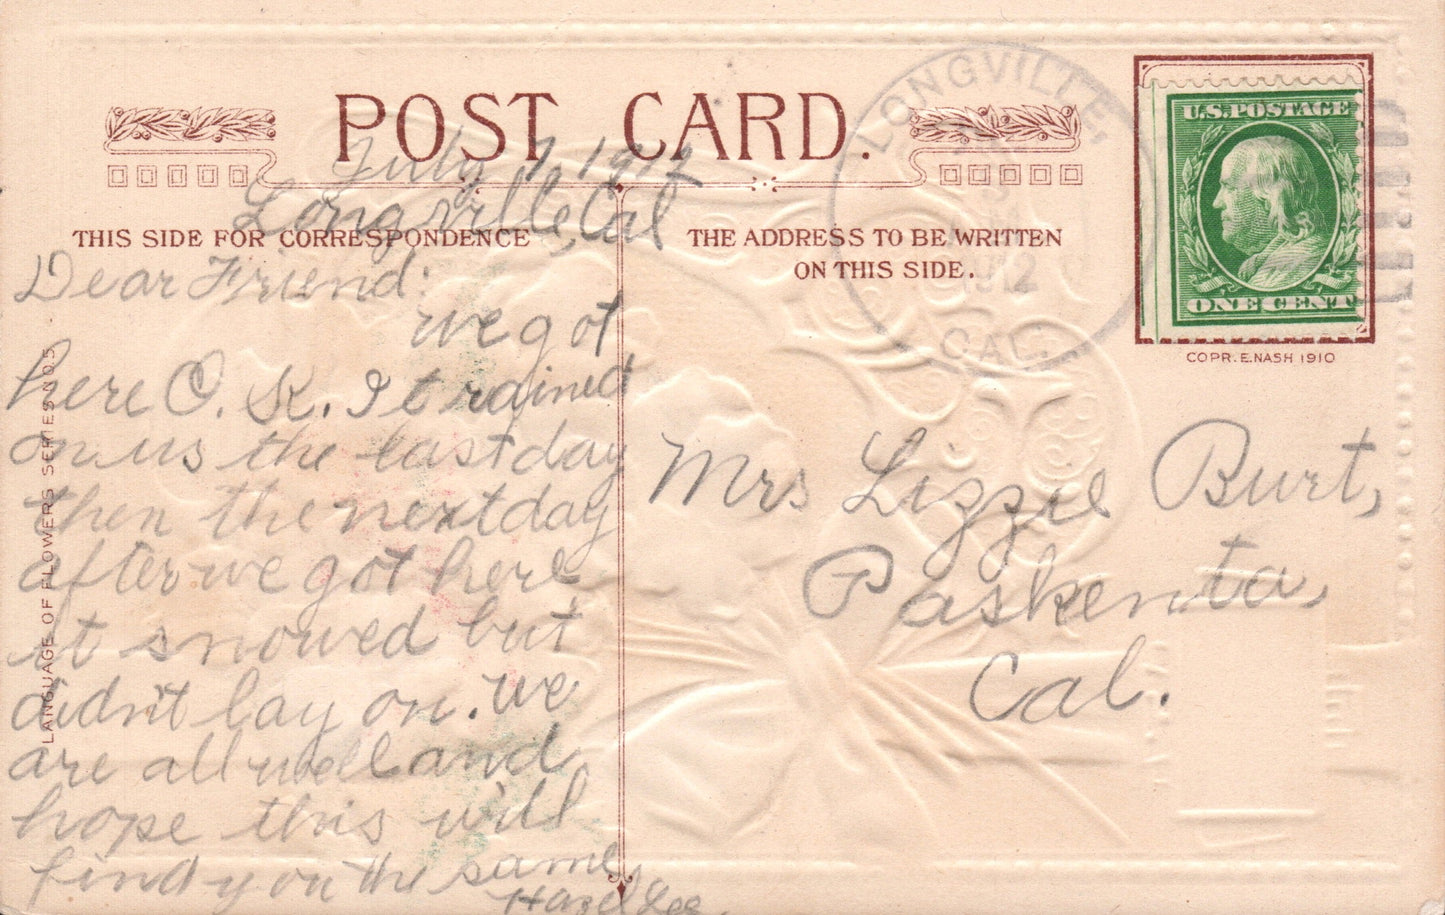 POST CARD.
July 7, 1912
Longville, Cal
THIS SIDE FOR CORRESPONDENCE
THE ADDRESS TO BE WRITTEN
ON THIS SIDE.
Dear Friend:
we got
here O. K. It rained
on us the last day
then the next day
after we got here
it snowed but
didn't lay on. we
are all well and
hope this will
find you the same,
Hazel Lee.
LANGUAGE OF FLOWERS SERIES NO 5
LONGVILLE,
1912
CAL.
U.S. POSTAGE
ONE CENT
COPR. E. NASH 1910
Mrs Lizzie Burt,
Paskenta,
Cal.